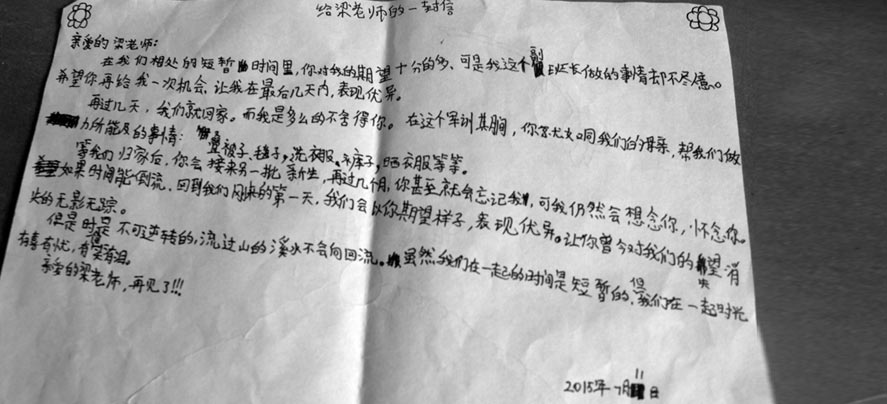 给梁老师的一封信
亲爱的梁老师:
在我们相处的短暂时间里,你对我的期望十分的多、可是我这个副班长做的事情却不尽意。
希望你再给我一次机会,让我在最后几天内,表现优异。
再过几天,我们就回家。而我是多么的不舍得你。在这个军训其胸,你尤如同我们的母亲,帮我们做
力所能及的事情:叠被子、毯子,洗衣服、裤子,晒衣服等等。
等我们归家后,你会接来另一批新生,再过几个月,你甚至就会忘记我,可我仍然会想念你,怀念你。
如果时间能倒流,回到我们刚来的第一天,我们会以你期望样子,表现优异。让你曾今对我们的失望消
失的无影无踪。
但是时是不可逆转的,流过山的溪水不会向回流。虽然我们在一起的时间是短暂的,但我们在一起时光
有喜有忧,有笑有泪。
亲爱的梁老师,再见了!!!
2015年7月11日